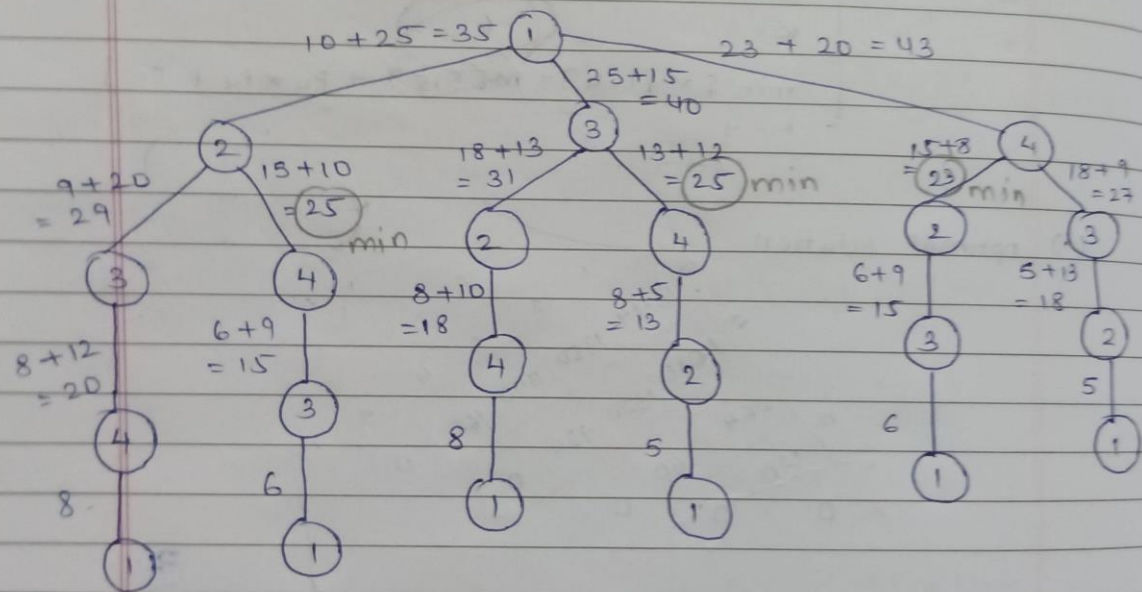 10 + 25 = 35
1
23 + 20 = 43
25+15
= 40
2
3
4
9 + 20
= 29
15+10
= 25
min
18+13
= 31
13+12
= 25 min
15+8
= 23
min
18+9
= 27
3
4
2
4
2
3
8 + 12
= 20
6+9
= 15
8+10
=18
8+5
= 13
6+9
= 15
5+13
= 18
4
3
4
2
3
2
8
6
8
5
6
5
1
1
1
1
1
1